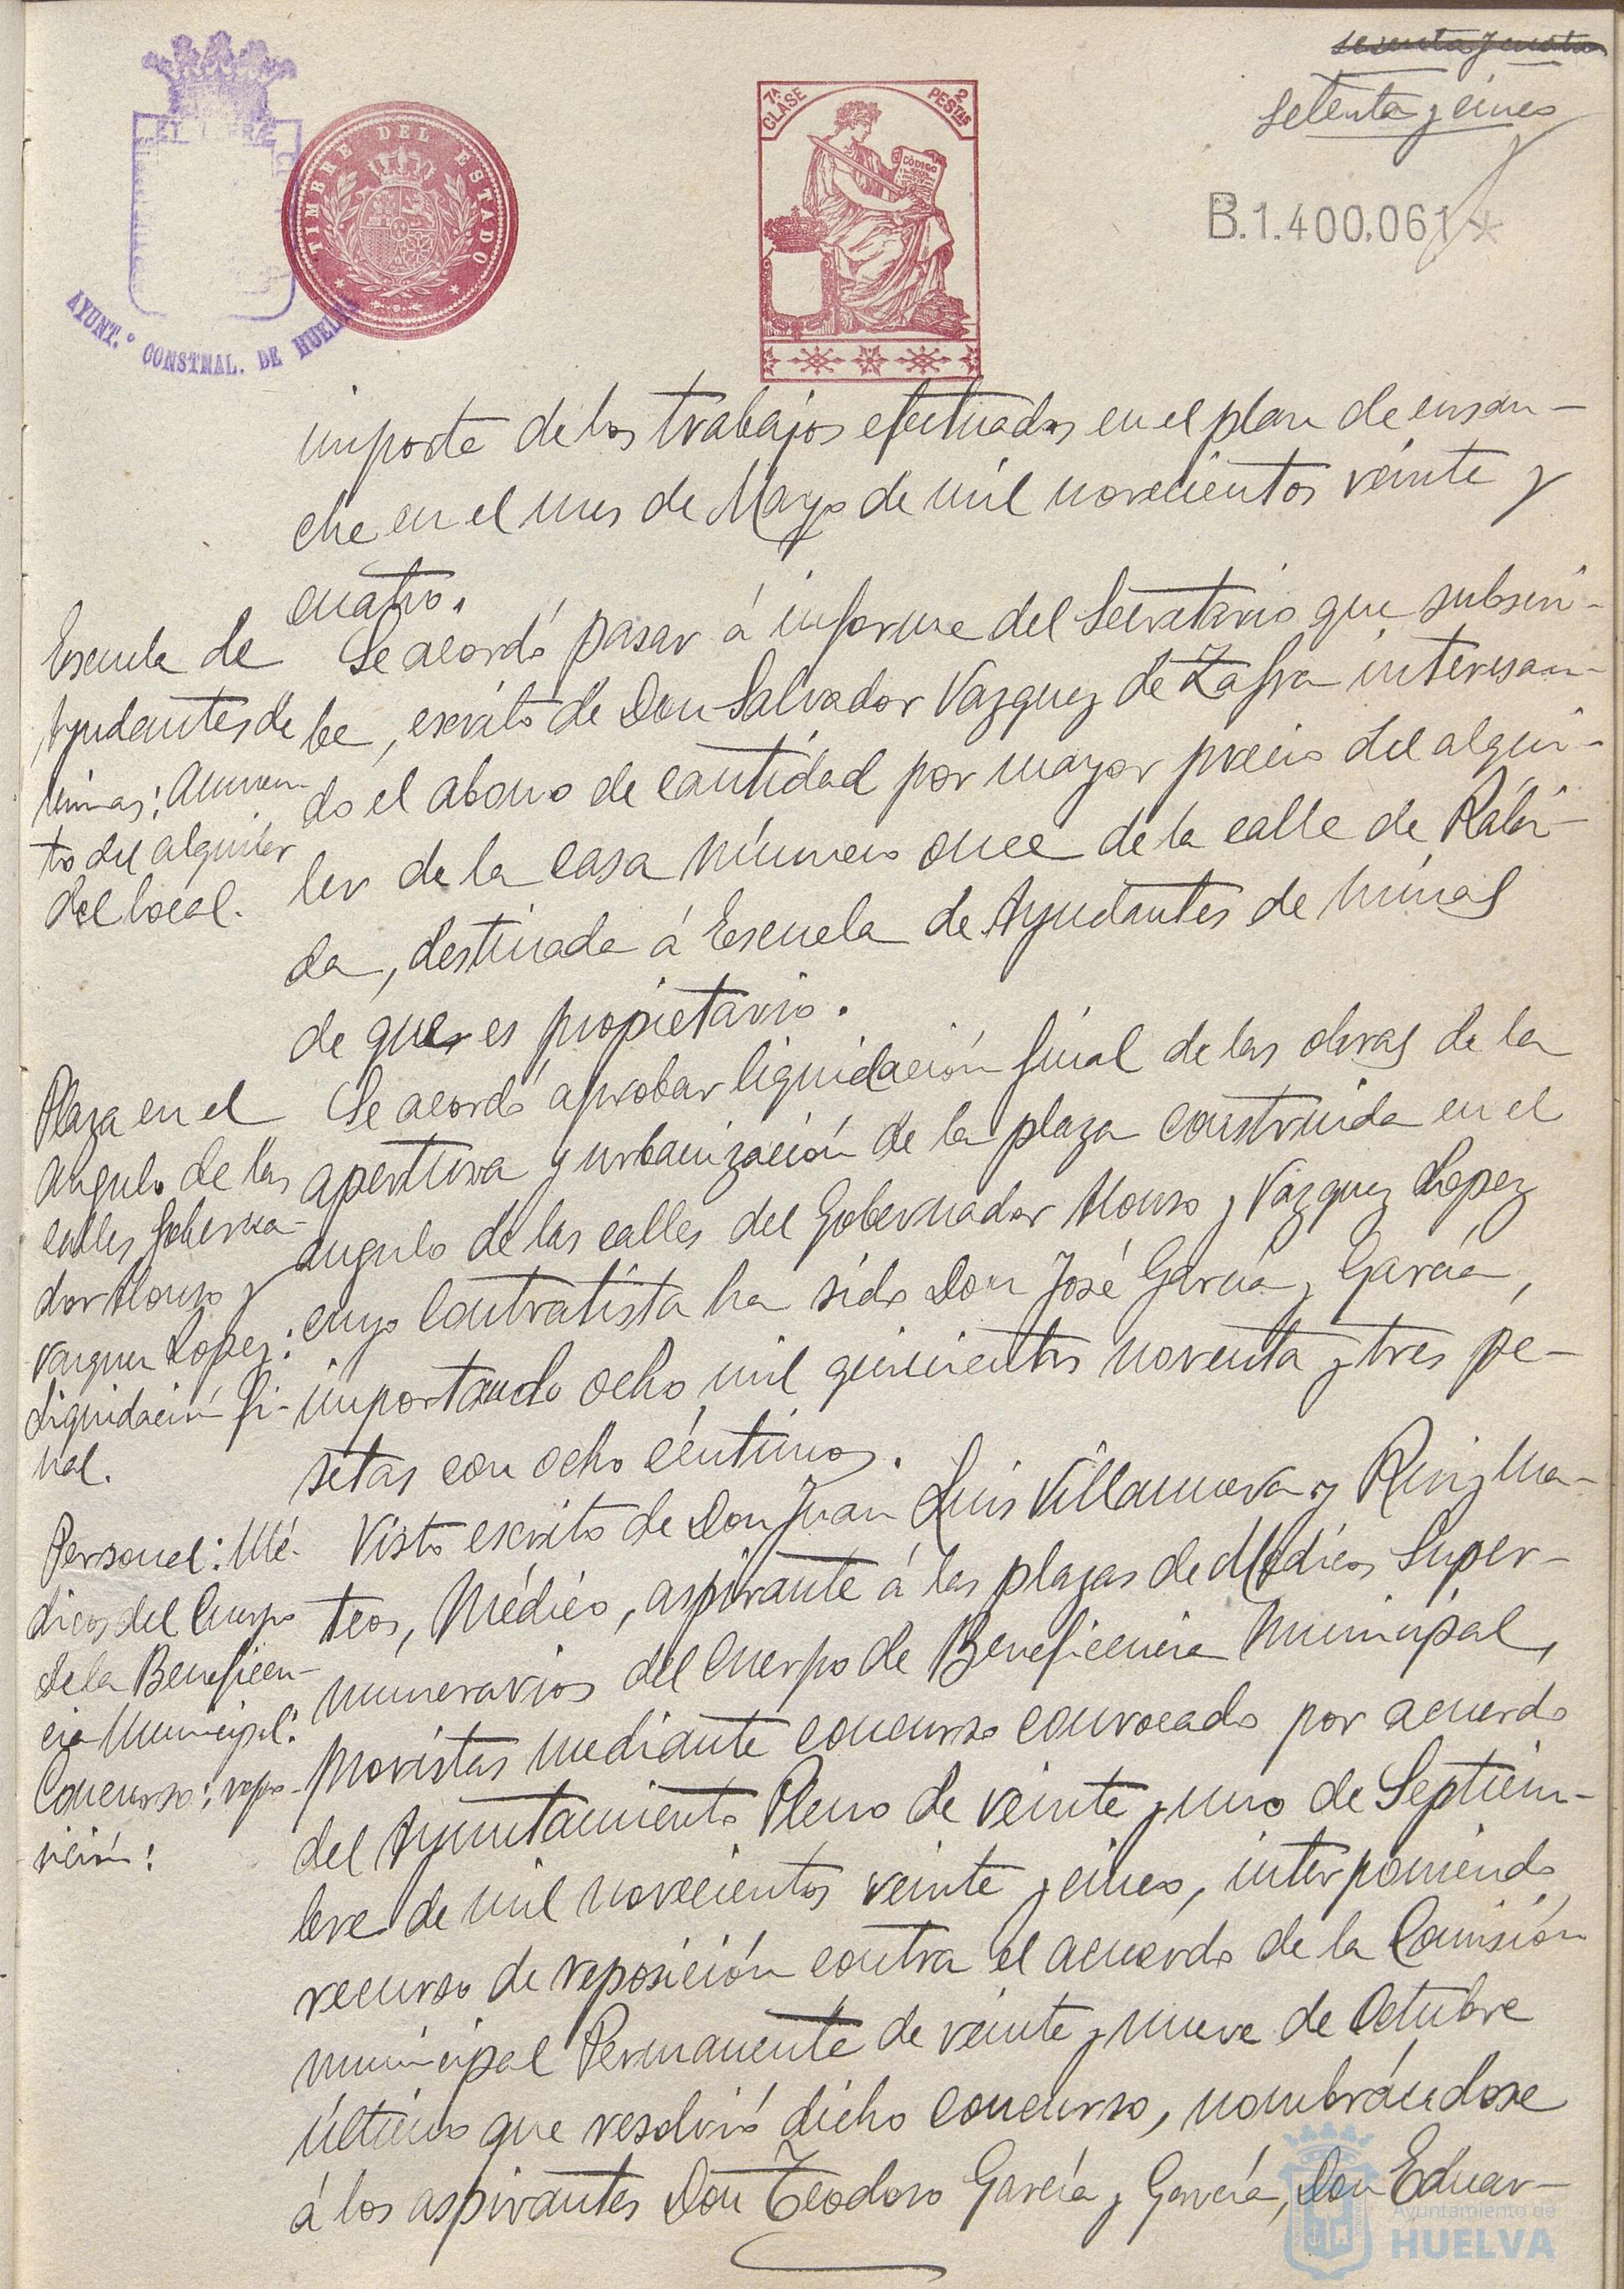 sesenta y cuatro
setenta y cinco
EL
TIMBRE DEL ESTADO
7ª CLASE
2 PESTAS
CODIGO
B.1.400.061 *
AYUNT.º CONSTNAL. DE HUELVA
importe de los trabajos efectuados en el plan de ensan-
che en el mes de Mayo de mil novecientos veinte y
cuatro.
Escuela de
Ayudantes de
minas; Aumen-
to del alquiler
del local.
Se acordó pasar á informe del Secretario que subscri-
be, escrito de Don Salvador Vazquez de Zafra interesan-
do el abono de cantidad por mayor precio del alqui-
ler de la casa número once de la calle de Rábi-
da, destinada á Escuela de Ayudantes de minas
de que es propietario.
Plaza en el
angulo de las
calles Goberna-
dor Alonso y
Vazquez Lopez:
Liquidación fi-
nal.
Se acordó aprobar liquidación final de las obras de la
apertura y urbanización de la plaza construida en el
angulo de las calles del Gobernador Alonso y Vazquez Lopez
cuyo contratista ha sido Don José García y García,
importando ocho mil quinientas noventa y tres pe-
setas con ocho céntimos.
Personal: Mé-
dicos del Cuerpo
de la Beneficen-
cia Municipal:
Concurso; repo-
sición:
Visto escrito de Don Juan Luis Villanueva y Ruiz Ma-
teos, Médico, aspirante á las plazas de Médicos Super-
numerarios del Cuerpo de Beneficencia Municipal,
provistas mediante concurso convocado por acuerdo
del Ayuntamiento Pleno de veinte y uno de Septiem-
bre de mil novecientos veinte y cinco, interponiendo
recurso de reposición contra el acuerdo de la Comisión
municipal Permanente de veinte y nueve de Octubre
último que resolvió dicho concurso, nombrándose
á los aspirantes Don Teodoro García y García, Don Eduar-
Ayuntamiento de
HUELVA